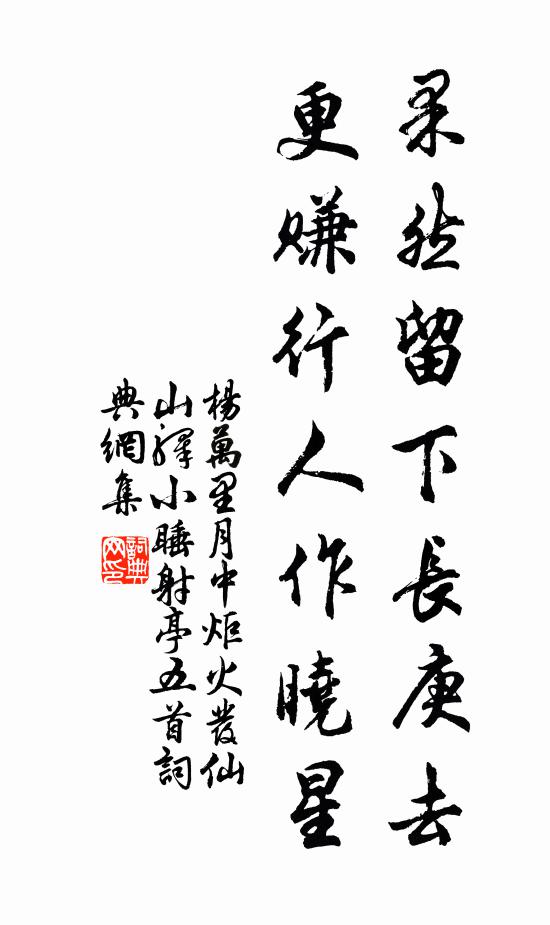 果然留下長庚去
更賺行人作曉星
楊萬里月中炬火發仙
山驛小睡射亭五首詞
典網集
詞典
网